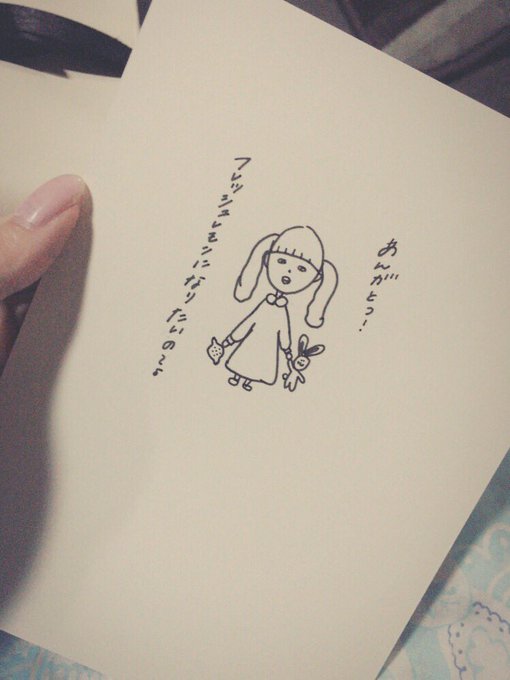 あんがとっ!
フレッシュレモンになりたいの~。